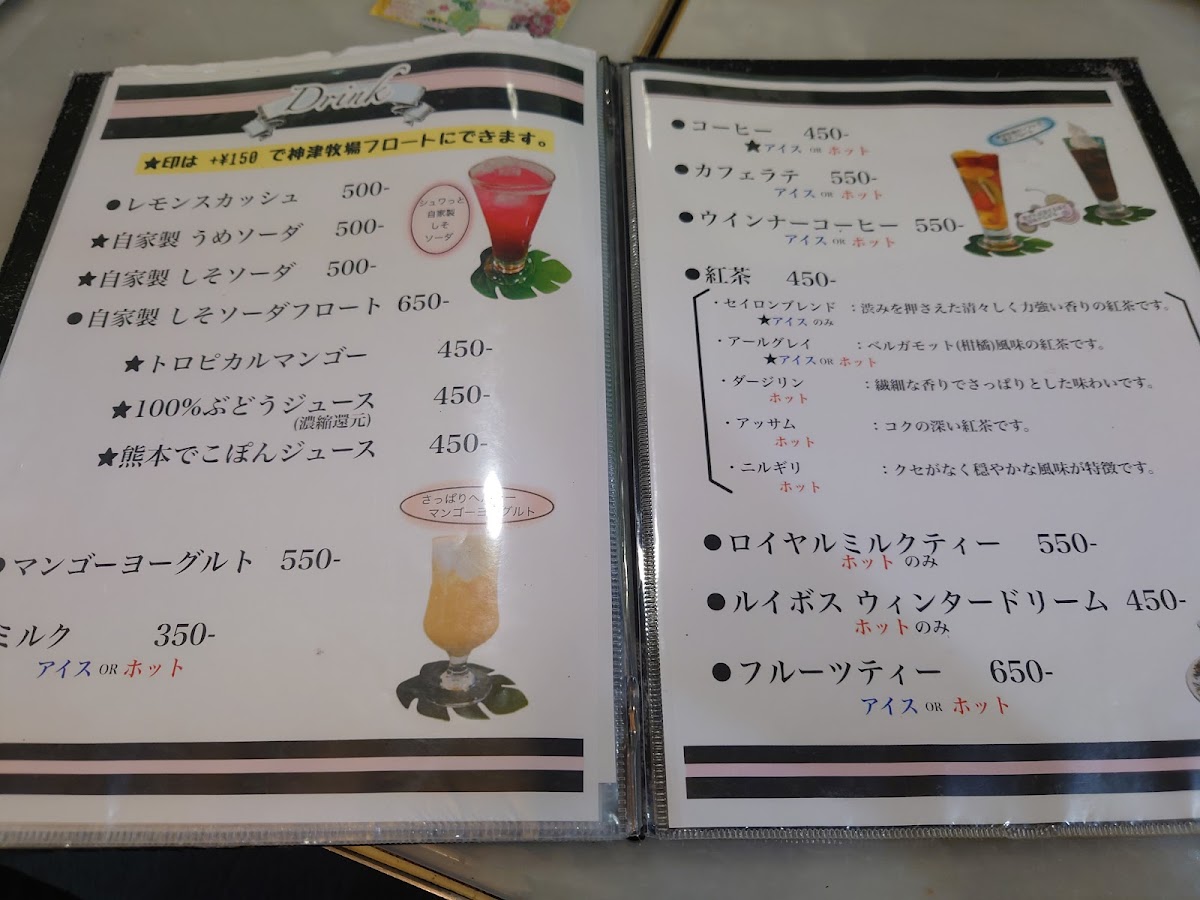 Drink
★印は +¥150 で神津牧場フロートにできます。
●レモンスカッシュ 500-
★自家製 うめソーダ 500-
★自家製 しそソーダ 500-
●自家製 しそソーダフロート 650-
シュワっと
自家製
しそ
ソーダ
★トロピカルマンゴー 450-
★100%ぶどうジュース 450-
(濃縮還元)
★熊本でこぽんジュース 450-
さっぱりヘルシー
マンゴーヨーグルト
●マンゴーヨーグルト 550-
ミルク 350-
アイス OR ホット
●コーヒー 450-
★アイス OR ホット
●カフェラテ 550-
アイス OR ホット
●ウインナーコーヒー 550-
アイス OR ホット
●紅茶 450-
・セイロンブレンド :渋みを押さえた清々しく力強い香りの紅茶です。
★アイス のみ
・アールグレイ :ベルガモット(柑橘)風味の紅茶です。
★アイス OR ホット
・ダージリン :繊細な香りでさっぱりとした味わいです。
ホット
・アッサム :コクの深い紅茶です。
ホット
・ニルギリ :クセがなく穏やかな風味が特徴です。
ホット
●ロイヤルミルクティー 550-
ホット のみ
●ルイボス ウィンタードリーム 450-
ホットのみ
●フルーツティー 650-
アイス OR ホット